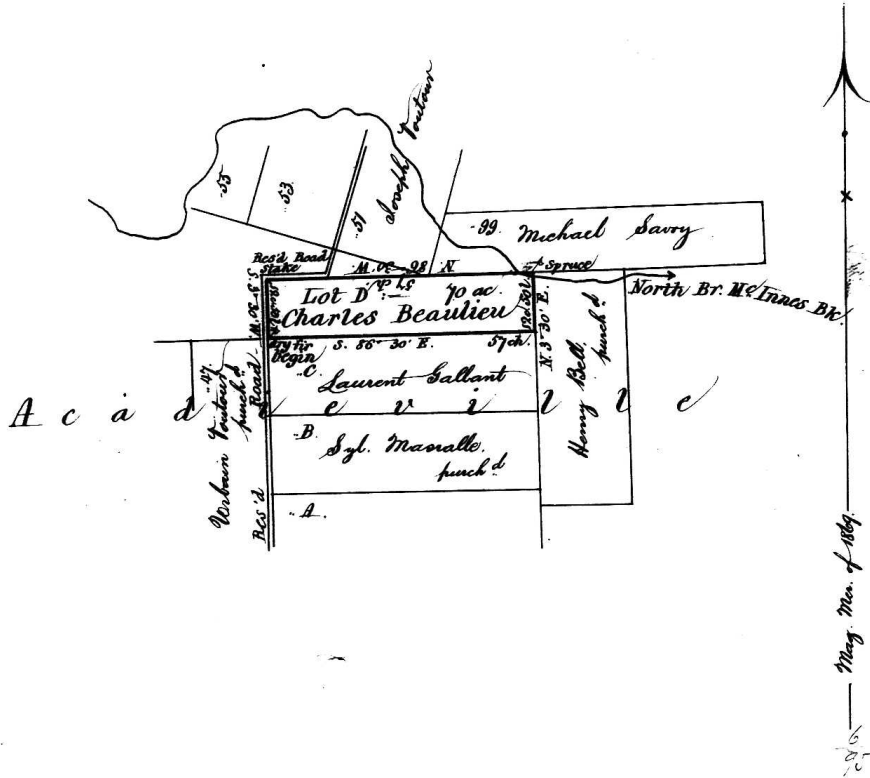 55
53.
51 Joseph Voutour
99. Michael Savoy
Res'd Road
Stake
N. 86° 30' W.
57 ch.
Spruce
North Br. McInnes Bk.
S. 3° 30' W.
Lot D 70 ac.
Charles Beaulieu
N. 3° 30' E.
begin
S. 86° 30' E. 57 ch
C
Laurent Gallant
Henry Bell,
purch'd
47.
Urbain Voutour
purch'd
Res'd Road
Acadieville
B
Syl.
purch'd
A.
Mag. Mer. of 1869.